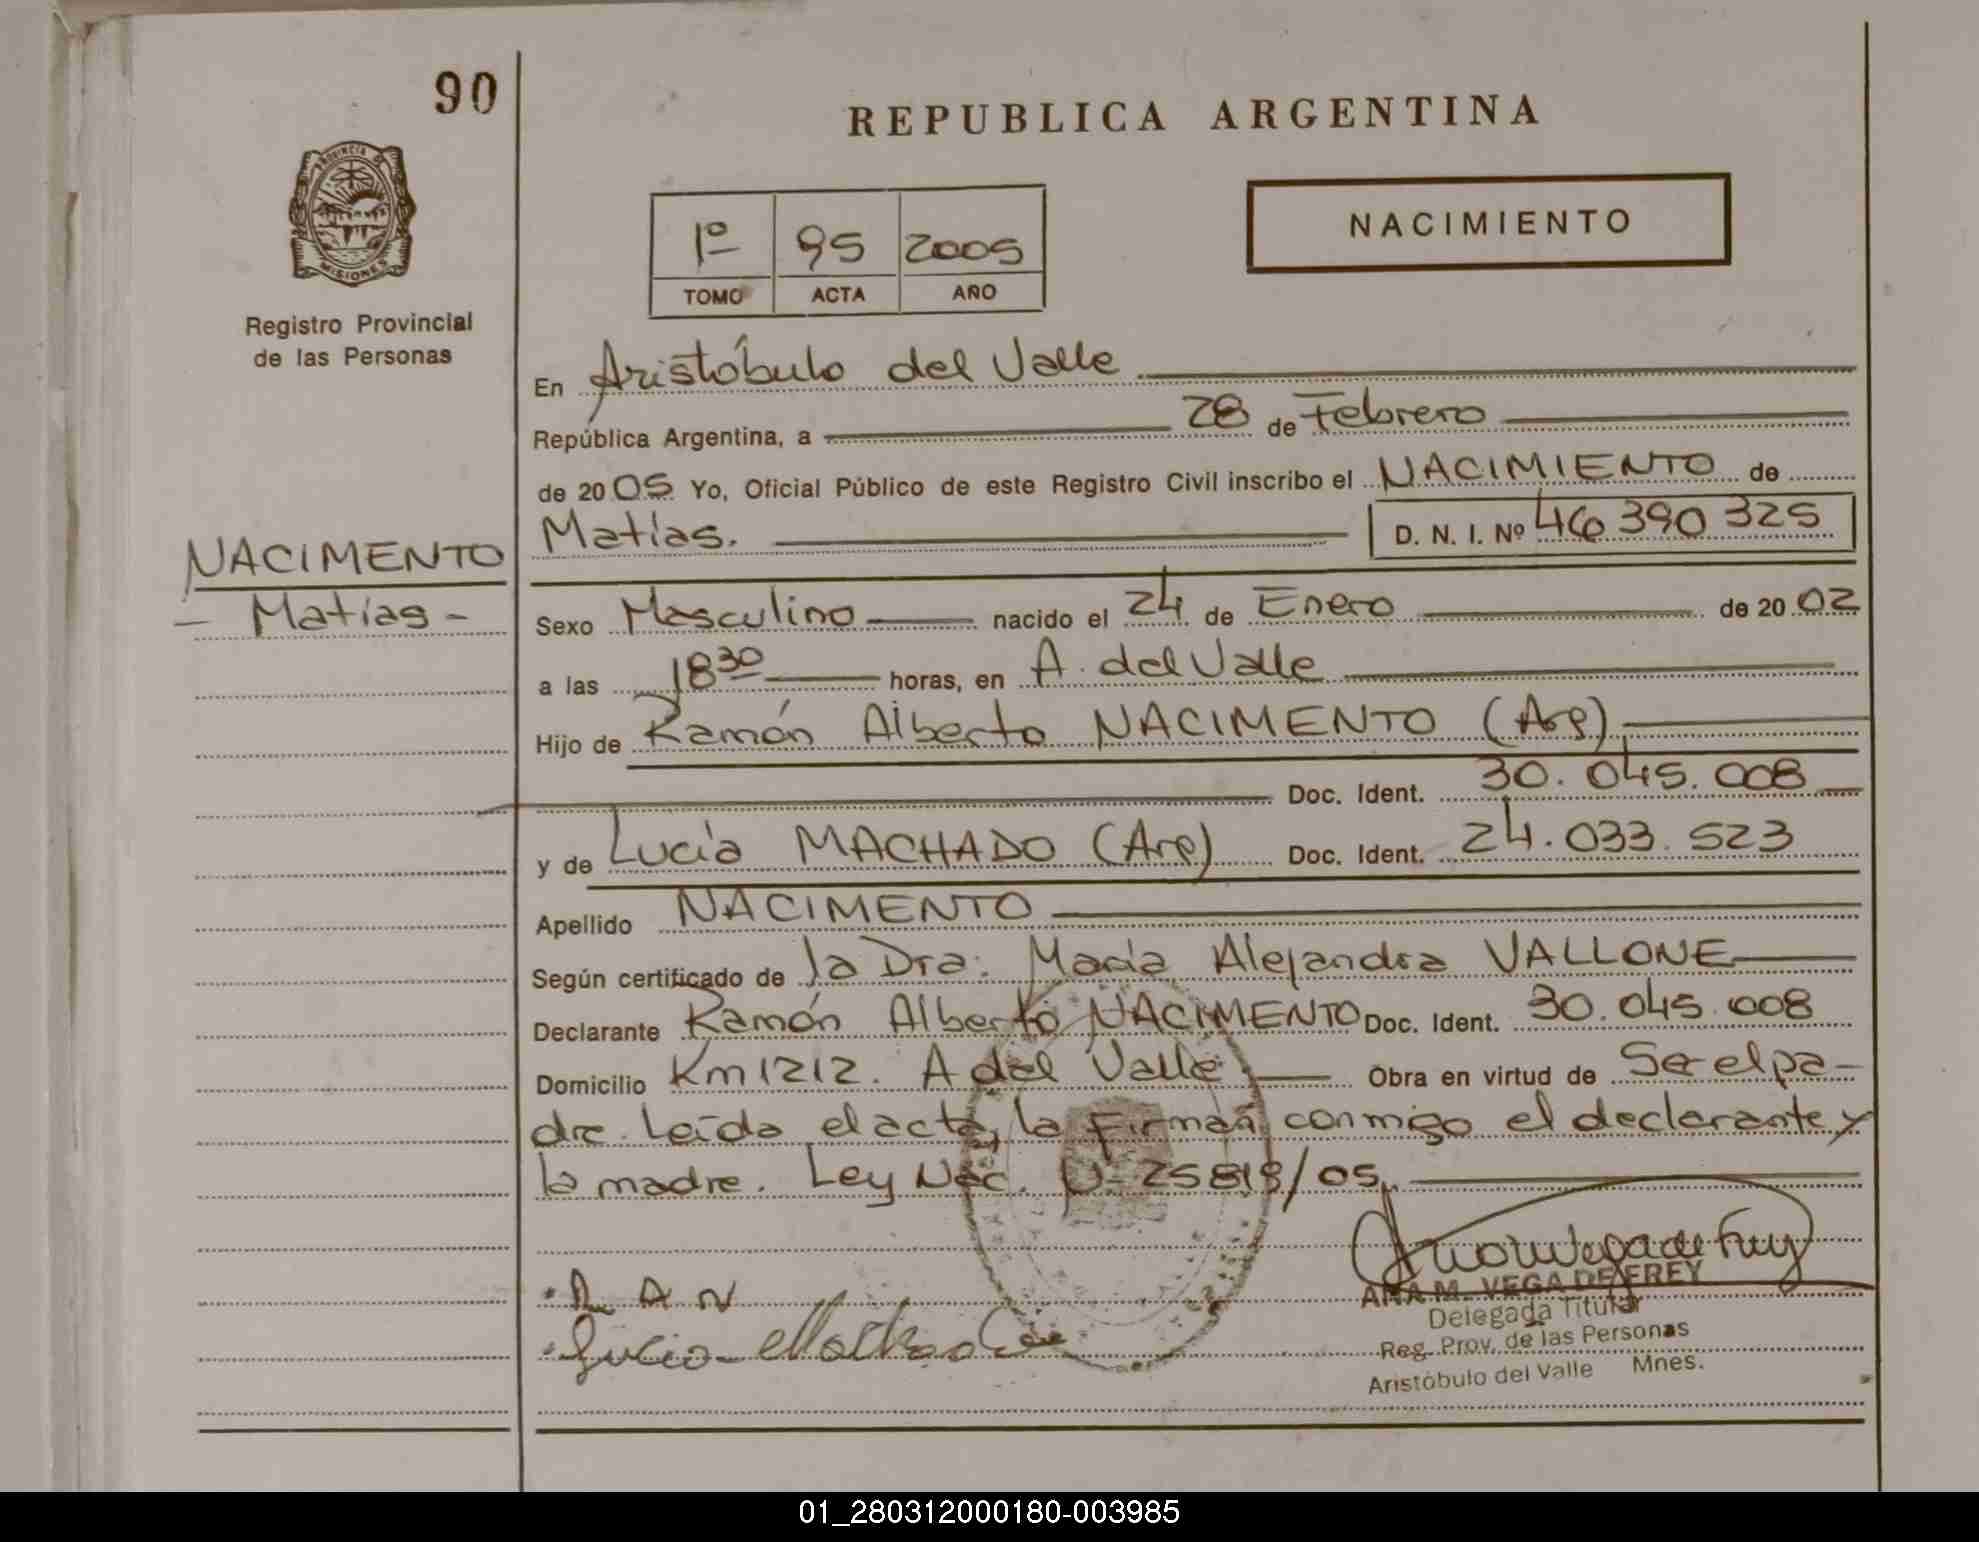 90
REPUBLICA ARGENTINA
PROVINCIA DE
MISIONES
Registro Provincial
de las Personas
NACIMIENTO
1º 95 2005
TOMO ACTA AÑO
En Aristóbulo del Valle
República Argentina, a 28 de Febrero
de 2005 Yo, Oficial Público de este Registro Civil inscribo el NACIMIENTO de
Matías. D. N. I. Nº 46 390 325
NACIMENTO
- Matías -
Sexo Masculino nacido el 24 de Enero de 2002
a las 18 30 horas, en A. del Valle
Hijo de Ramón Alberto NACIMENTO (Arg)
Doc. Ident. 30.045.008
y de Lucía MACHADO (Arg) Doc. Ident. 24.033.523
Apellido NACIMENTO
Según certificado de la Dra. María Alejandra VALLONE
Declarante Ramón Alberto NACIMENTO Doc. Ident. 30.045.008
Domicilio Km 1212. A del Valle Obra en virtud de Ser el pa-
dre. Leída el acta, la Firman conmigo el declarante y
la madre. Ley Nac. Nº 25819/05.
R A N
Lucia Machado
Ana M Vega de Frey
ANA M. VEGA DE FREY
Delegada Titular
Reg. Prov. de las Personas
Aristóbulo del Valle Mnes.
01_280312000180-003985